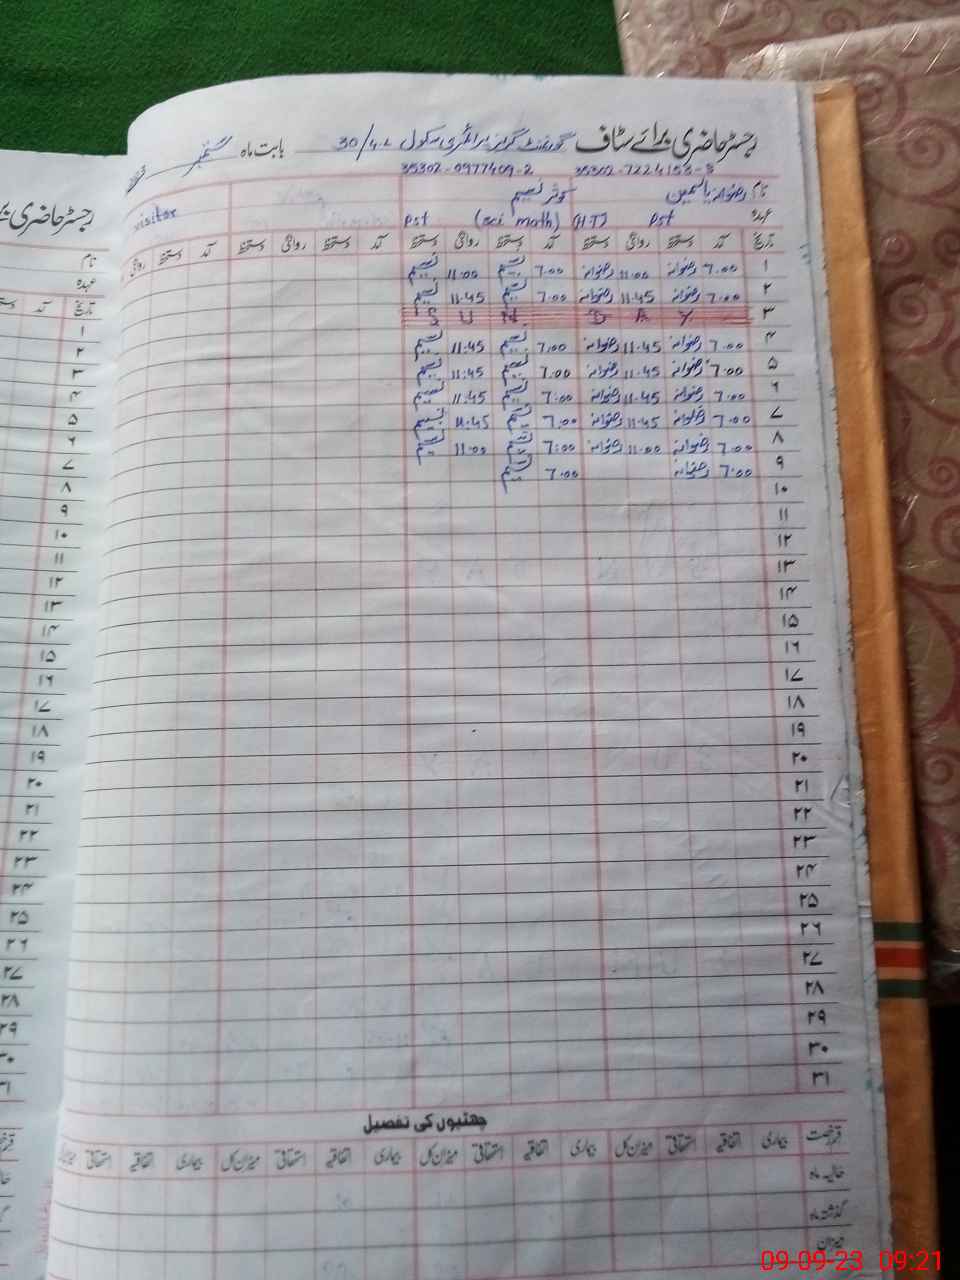 رجسٹر حاضری برائے سٹاف گورنمنٹ گرلز پرائمری سکول 30/4.L بابت ماہ ستمبر
35302-7224153-8 35302-0977409-2
نام رضوانہ یاسمین کوثر نسیم
عہدہ Pst (H.T) (sci math) Pst visitor
تاریخ آمد دستخط روانگی دستخط آمد دستخط روانگی دستخط آمد دستخط روانگی دستخط آمد دستخط روانگی
۱ 7.00 رضوانہ 11.00 رضوانہ 7.00 نسیم 11.00 نسیم
۲ 7.00 رضوانہ 11.45 رضوانہ 7.00 نسیم 11.45 نسیم
۳ S U N D A Y
۴ 7.00 رضوانہ 11.45 رضوانہ 7.00 نسیم 11.45 نسیم
۵ 7.00 رضوانہ 11.45 رضوانہ 7.00 نسیم 11.45 نسیم
۶ 7.00 رضوانہ 11.45 رضوانہ 7.00 نسیم 11.45 نسیم
۷ 7.00 رضوانہ 11.45 رضوانہ 7.00 نسیم 11.45 نسیم
۸ 7.00 رضوانہ 11.00 رضوانہ 7.00 نسیم 11.00 نسیم
۹ 7.00 رضوانہ 7.00 نسیم
۱۰
۱۱
۱۲
۱۳
۱۴
۱۵
۱۶
۱۷
۱۸
۱۹
۲۰
۲۱
۲۲
۲۳
۲۴
۲۵
۲۶
۲۷
۲۸
۲۹
۳۰
۳۱
چھٹیوں کی تفصیل
قسم رخصت بیماری اتفاقیہ استحقاقی میزان کل بیماری اتفاقیہ استحقاقی میزان کل بیماری اتفاقیہ استحقاقی میزان کل بیماری اتفاقیہ استحقاقی
حالیہ ماہ
گذشتہ ماہ
میزان
رجسٹر حاضری
نام
عہدہ
تاریخ آمد
۱
۲
۳
۴
۵
۶
۷
۸
۹
۱۰
۱۱
۱۲
۱۳
۱۴
۱۵
۱۶
۱۷
۱۸
۱۹
۲۰
۲۱
۲۲
۲۳
۲۴
۲۵
۲۶
۲۷
۲۸
۲۹
۳۰
۳۱
09-09-23 09:21